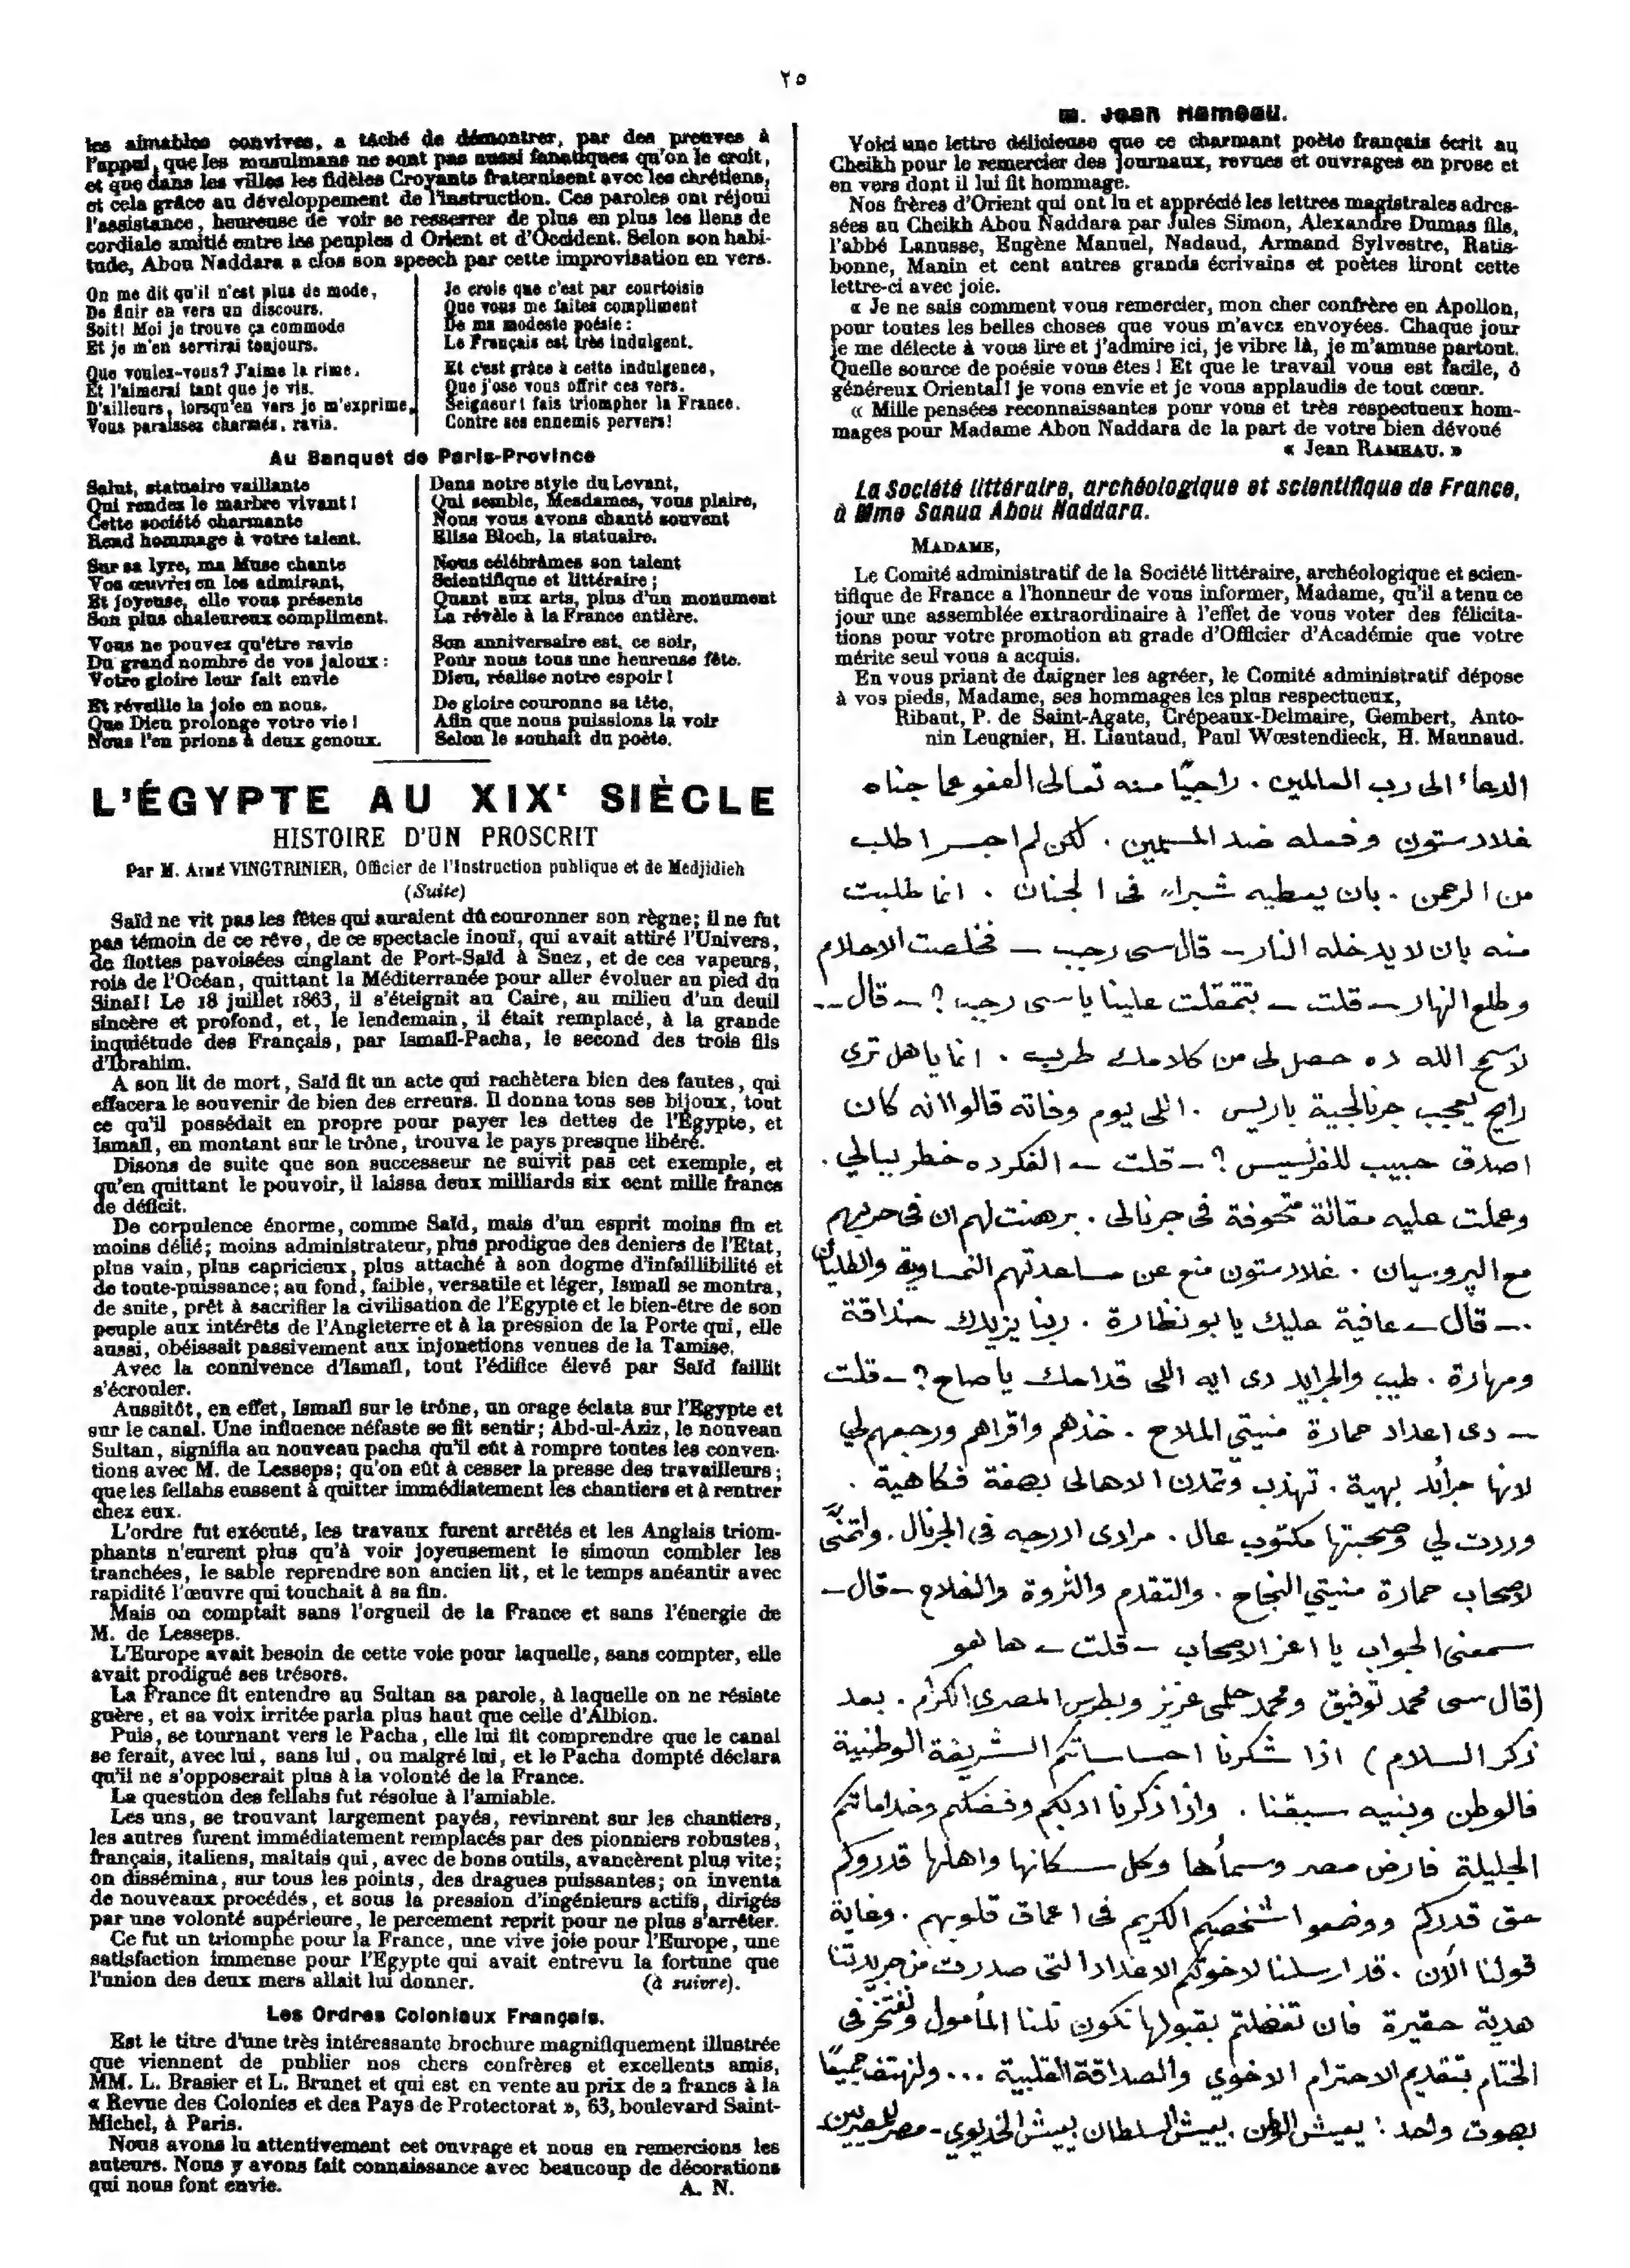 ٢٥
les aimables convives, a tâché de démontrer, par des preuves à
l'appui, que les musulmans ne sont pas aussi fanatiques qu'on le croit,
et que dans les villes les fidèles Croyants fraternisent avec les chrétiens,
et cela grâce au développement de l'instruction. Ces paroles ont réjoui
l'assistance, heureuse de voir se resserrer de plus en plus les liens de
cordiale amitié entre les peuples d Orient et d'Occident. Selon son habi-
tude, Abou Naddara a clos son speech par cette improvisation en vers.
On me dit qu'il n'est plus de mode,
De finir en vers un discours.
Soit! Moi je trouve ça commode
Et je m'en servirai toujours.
Que voulez-vous? J'aime la rime.
Et l'aimerai tant que je vis.
D'ailleurs, lorsqu'en vers je m'exprime,
Vous paraissez charmés, ravis.
Je crois que c'est par courtoisie
Que vous me faites compliment
De ma modeste poésie:
Le Français est très indulgent.
Et c'est grâce à cette indulgence,
Que j'ose vous offrir ces vers.
Seigneur! fais triompher la France.
Contre ses ennemis pervers!
Au Banquet de Paris-Province
Salut, statuaire vaillante
Qui rendez le marbre vivant!
Cette société charmante
Rend hommage à votre talent.
Sur sa lyre, ma Muse chante
Vos œuvres en les admirant,
Et joyeuse, elle vous présente
Son plus chaleureux compliment.
Vous ne pouvez qu'être ravie
Du grand nombre de vos jaloux:
Votre gloire leur fait envie
Et réveille la joie en nous.
Que Dieu prolonge votre vie!
Nous l'en prions à deux genoux.
Dans notre style du Levant,
Qui semble, Mesdames, vous plaire,
Nous vous avons chanté souvent
Elisa Bloch, la statuaire.
Nous célébrâmes son talent
Scientifique et littéraire;
Quant aux arts, plus d'un monument
La révèle à la France entière.
Son anniversaire est, ce soir,
Pour nous tous une heureuse fête.
Dieu, réalise notre espoir!
De gloire couronne sa tête,
Afin que nous puissions la voir
Selon le souhait du poète.
L'ÉGYPTE AU XIXe SIÈCLE
HISTOIRE D'UN PROSCRIT
Par M. AIMÉ VINGTRINIER, Officier de l'Instruction publique et de Medjidieh
(Suite)
Saïd ne vit pas les fêtes qui auraient dû couronner son règne; il ne fut
pas témoin de ce rêve, de ce spectacle inouï, qui avait attiré l'Univers,
de flottes pavoisées cinglant de Port-Saïd à Suez, et de ces vapeurs,
rois de l'Océan, quittant la Méditerranée pour aller évoluer au pied du
Sinaï! Le 18 juillet 1863, il s'éteignit au Caire, au milieu d'un deuil
sincère et profond, et, le lendemain, il était remplacé, à la grande
inquiétude des Français, par Ismaïl-Pacha, le second des trois fils
d'Ibrahim.
A son lit de mort, Saïd fit un acte qui rachètera bien des fautes, qui
effacera le souvenir de bien des erreurs. Il donna tous ses bijoux, tout
ce qu'il possédait en propre pour payer les dettes de l'Égypte, et
Ismaïl, en montant sur le trône, trouva le pays presque libéré.
Disons de suite que son successeur ne suivit pas cet exemple, et
qu'en quittant le pouvoir, il laissa deux milliards six cent mille francs
de déficit.
De corpulence énorme, comme Saïd, mais d'un esprit moins fin et
moins délié; moins administrateur, plus prodigue des deniers de l'Etat,
plus vain, plus capricieux, plus attaché à son dogme d'infaillibilité et
de toute-puissance; au fond, faible, versatile et léger, Ismaïl se montra,
de suite, prêt à sacrifier la civilisation de l'Egypte et le bien-être de son
peuple aux intérêts de l'Angleterre et à la pression de la Porte qui, elle
aussi, obéissait passivement aux injonctions venues de la Tamise.
Avec la connivence d'Ismaïl, tout l'édifice élevé par Saïd faillit
s'écrouler.
Aussitôt, en effet, Ismaïl sur le trône, un orage éclata sur l'Egypte et
sur le canal. Une influence néfaste se fit sentir; Abd-ul-Aziz, le nouveau
Sultan, signifia au nouveau pacha qu'il eût à rompre toutes les conven-
tions avec M. de Lesseps; qu'on eût à cesser la presse des travailleurs;
que les fellahs eussent à quitter immédiatement les chantiers et à rentrer
chez eux.
L'ordre fut exécuté, les travaux furent arrêtés et les Anglais triom-
phants n'eurent plus qu'à voir joyeusement le simoun combler les
tranchées, le sable reprendre son ancien lit, et le temps anéantir avec
rapidité l'œuvre qui touchait à sa fin.
Mais on comptait sans l'orgueil de la France et sans l'énergie de
M. de Lesseps.
L'Europe avait besoin de cette voie pour laquelle, sans compter, elle
avait prodigué ses trésors.
La France fit entendre au Sultan sa parole, à laquelle on ne résiste
guère, et sa voix irritée parla plus haut que celle d'Albion.
Puis, se tournant vers le Pacha, elle lui fit comprendre que le canal
se ferait, avec lui, sans lui, ou malgré lui, et le Pacha dompté déclara
qu'il ne s'opposerait plus à la volonté de la France.
La question des fellahs fut résolue à l'amiable.
Les uns, se trouvant largement payés, revinrent sur les chantiers,
les autres furent immédiatement remplacés par des pionniers robustes,
français, italiens, maltais qui, avec de bons outils, avancèrent plus vite;
on dissémina, sur tous les points, des dragues puissantes; on inventa
de nouveaux procédés, et sous la pression d'ingénieurs actifs, dirigés
par une volonté supérieure, le percement reprit pour ne plus s'arrêter.
Ce fut un triomphe pour la France, une vive joie pour l'Europe, une
satisfaction immense pour l'Egypte qui avait entrevu la fortune que
l'union des deux mers allait lui donner. (à suivre).
Les Ordres Coloniaux Français.
Est le titre d'une très intéressante brochure magnifiquement illustrée
que viennent de publier nos chers confrères et excellents amis,
MM. L. Brasier et L. Brunet et qui est en vente au prix de 2 francs à la
« Revue des Colonies et des Pays de Protectorat », 63, boulevard Saint-
Michel, à Paris.
Nous avons lu attentivement cet ouvrage et nous en remercions les
auteurs. Nous y avons fait connaissance avec beaucoup de décorations
qui nous font envie. A. N.
M. Jean Rameau.
Voici une lettre délicieuse que ce charmant poète français écrit au
Cheikh pour le remercier des journaux, revues et ouvrages en prose et
en vers dont il lui fit hommage.
Nos frères d'Orient qui ont lu et apprécié les lettres magistrales adres-
sées au Cheikh Abou Naddara par Jules Simon, Alexandre Dumas fils,
l'abbé Lanusse, Eugène Manuel, Nadaud, Armand Sylvestre, Ratis-
bonne, Manin et cent autres grands écrivains et poètes liront cette
lettre-ci avec joie.
« Je ne sais comment vous remercier, mon cher confrère en Apollon,
pour toutes les belles choses que vous m'avez envoyées. Chaque jour
je me délecte à vous lire et j'admire ici, je vibre là, je m'amuse partout.
Quelle source de poésie vous êtes! Et que le travail vous est facile, ô
généreux Oriental! je vous envie et je vous applaudis de tout cœur.
« Mille pensées reconnaissantes pour vous et très respectueux hom-
mages pour Madame Abou Naddara de la part de votre bien dévoué
« Jean RAMEAU. »
La Société littéraire, archéologique et scientifique de France,
à Mme Sanua Abou Naddara.
MADAME,
Le Comité administratif de la Société littéraire, archéologique et scien-
tifique de France a l'honneur de vous informer, Madame, qu'il a tenu ce
jour une assemblée extraordinaire à l'effet de vous voter des félicita-
tions pour votre promotion au grade d'Officier d'Académie que votre
mérite seul vous a acquis.
En vous priant de daigner les agréer, le Comité administratif dépose
à vos pieds, Madame, ses hommages les plus respectueux,
Ribaut, P. de Saint-Agate, Crépeaux-Delmaire, Gembert, Anto-
nin Leugnier, H. Liautaud, Paul Wœstendieck, H. Maunaud.
الدعاء الى رب العالمين . راجيًا منه تعالى العفو عما جناه
غلادستون وفعله ضد المسلمين . لكن لم اجسر اطلب
من الرحمن . بان يعطيه شبراء فى الجنان . انما طلبت
منه بان لا يدخله النار — قال سى رجب — فخلصت الاحلام
وطلع النهار — قلت — بتتمقلت علينا يا سى رجب ? — قال —
لا سمح الله ده حصل لى من كلامك طرب . انما يا هل ترى
رايح يعجب جرنالجية باريس . اللى يوم وفاته قالوا انه كان
اصدق حبيب للفرنسيس ? — قلت — الفكر ده خطر ببالي .
وعملت عليه مقالة متحوفة فى جرنالى . برهنت لهم ان فى حربهم
مع البروسيان . غلادستون منع عن مساعدتهم النمساوية والطليان
— قال — عافية عليك يا بو نظارة . ربنا يزيدك حذاقة
ومهارة . طيب والجرايد دى ايه اللى قدامك يا صاح ? — قلت
— دى اعداد حمارة منيتي الملاح . خذهم واقراهم ورجعهم لي
لانها جرائد بهية . تهذب وتمدن الاهالى بصفة فكاهية .
وردت لي وصحبتها مكتوب عال . مرادى ادرجه فى الجرنال . واتمنَّى
لاصحاب حمارة منيتي النجاح . والتقدم والثروة والفلاح — قال —
سمعنى الجواب يا اعز الاصحاب — قلت — ها هو
(قال سى محمد توفيق ومحمد حلمى عزيز وبطرس المصرى الكرام . بعد
ذكر السلام) اذا شكرنا احساساتكم الشريفة الوطنية
فالوطن وبنيه سبقنا . واذا ذكرنا ادبكم وفضلكم وخداماتكم
الجليلة فارض مصر وسماُها وكل سكانها واهلها قدروكم
حق قدركم ووضعوا شخصكم الكريم فى اعماق قلوبهم . وغاية
قولنا الآن . قد ارسلنا لاخوتكم الاعداد التى صدرت من جريدتنا
هدية حقيرة فان تفضلتم بقبولها نكون نلنا المأمول ونفتخر فى
الختام بتقديم الاحترام الاخوي والصداقة القلبية ... ولنهتف جميعًا
بصوت واحد : يعيش الوطن يعيش السلطان يعيش الخديوي - مصر للمصريين